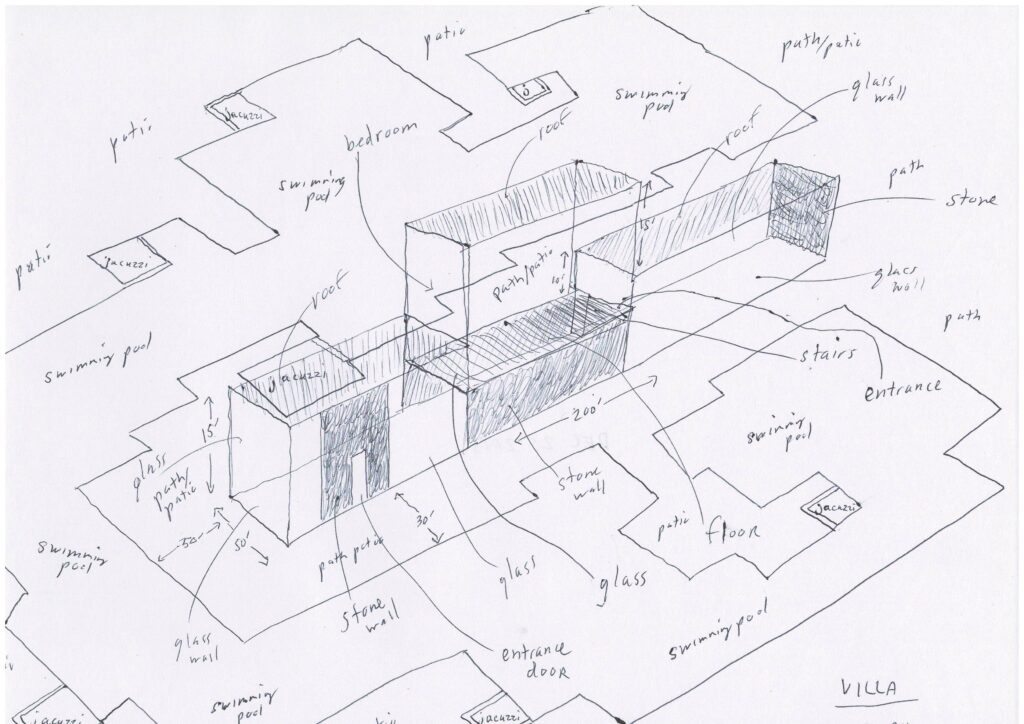 patio
path/patio
glass
wall
jacuzzi
J
swimming
pool
patio
bedroom
roof
roof
path
swimming
pool
stone
15'
patio
jacuzzi
path/patio
10'
glass
wall
roof
path
swimming pool
stairs
jacuzzi
entrance
200'
15'
swimming
pool
glass
path/
patio
stone
wall
jacuzzi
patio
floor
30'
50'
50'
swimming
pool
path patio
glass
glass
stone
wall
glass
wall
swimming pool
entrance
door
VILLA
swimming
pool
jacuzzi
jacuzzi